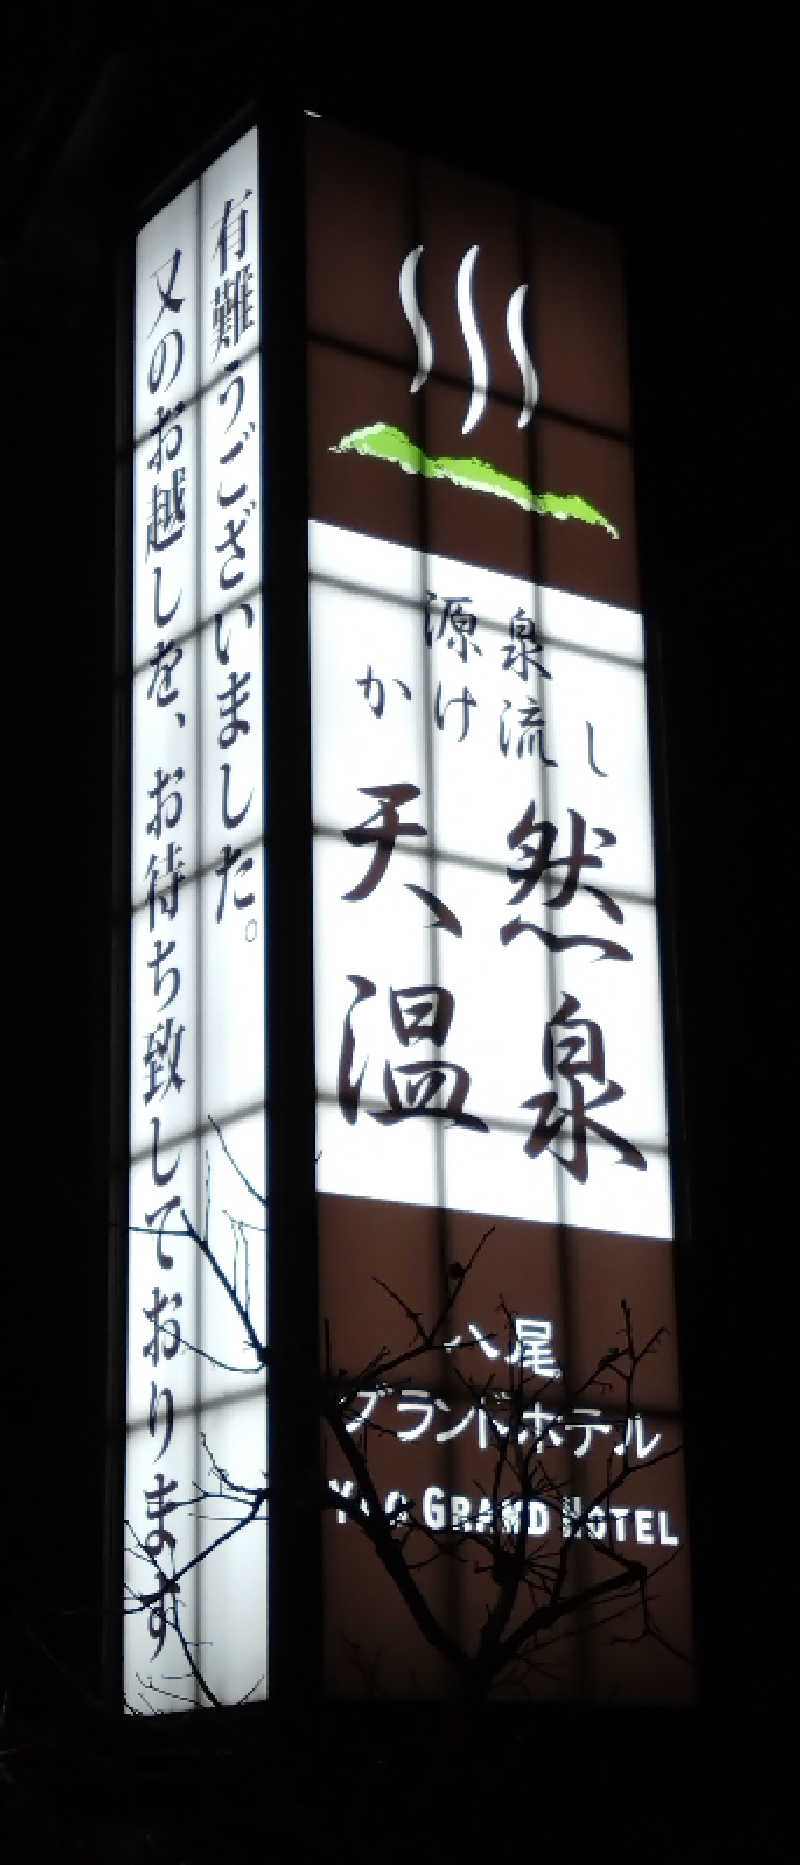 有難うございました。
又のお越しを、お待ち致しております
源泉
かけ流し
天然
温泉
八尾
グランドホテル
YAO GRAND HOTEL